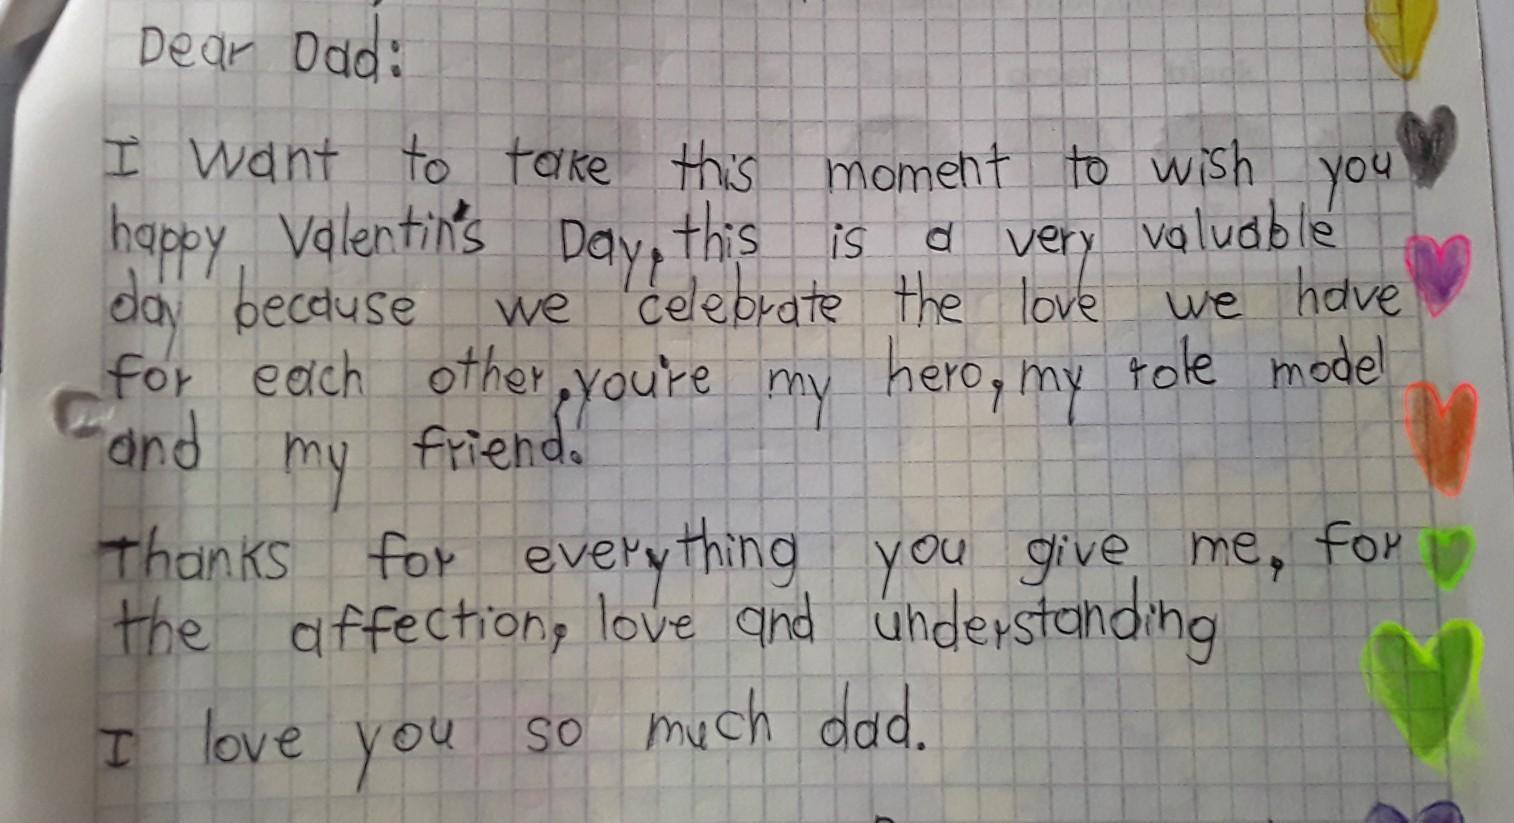 Dear Dad:
I want to take this moment to wish you
happy Valentin's Day, this is a very valuable
day because we celebrate the love we have
for each other, you're my hero, my role model
and my friend.
Thanks for everything you give me, for
the affection, love and understanding
I love you so much dad.